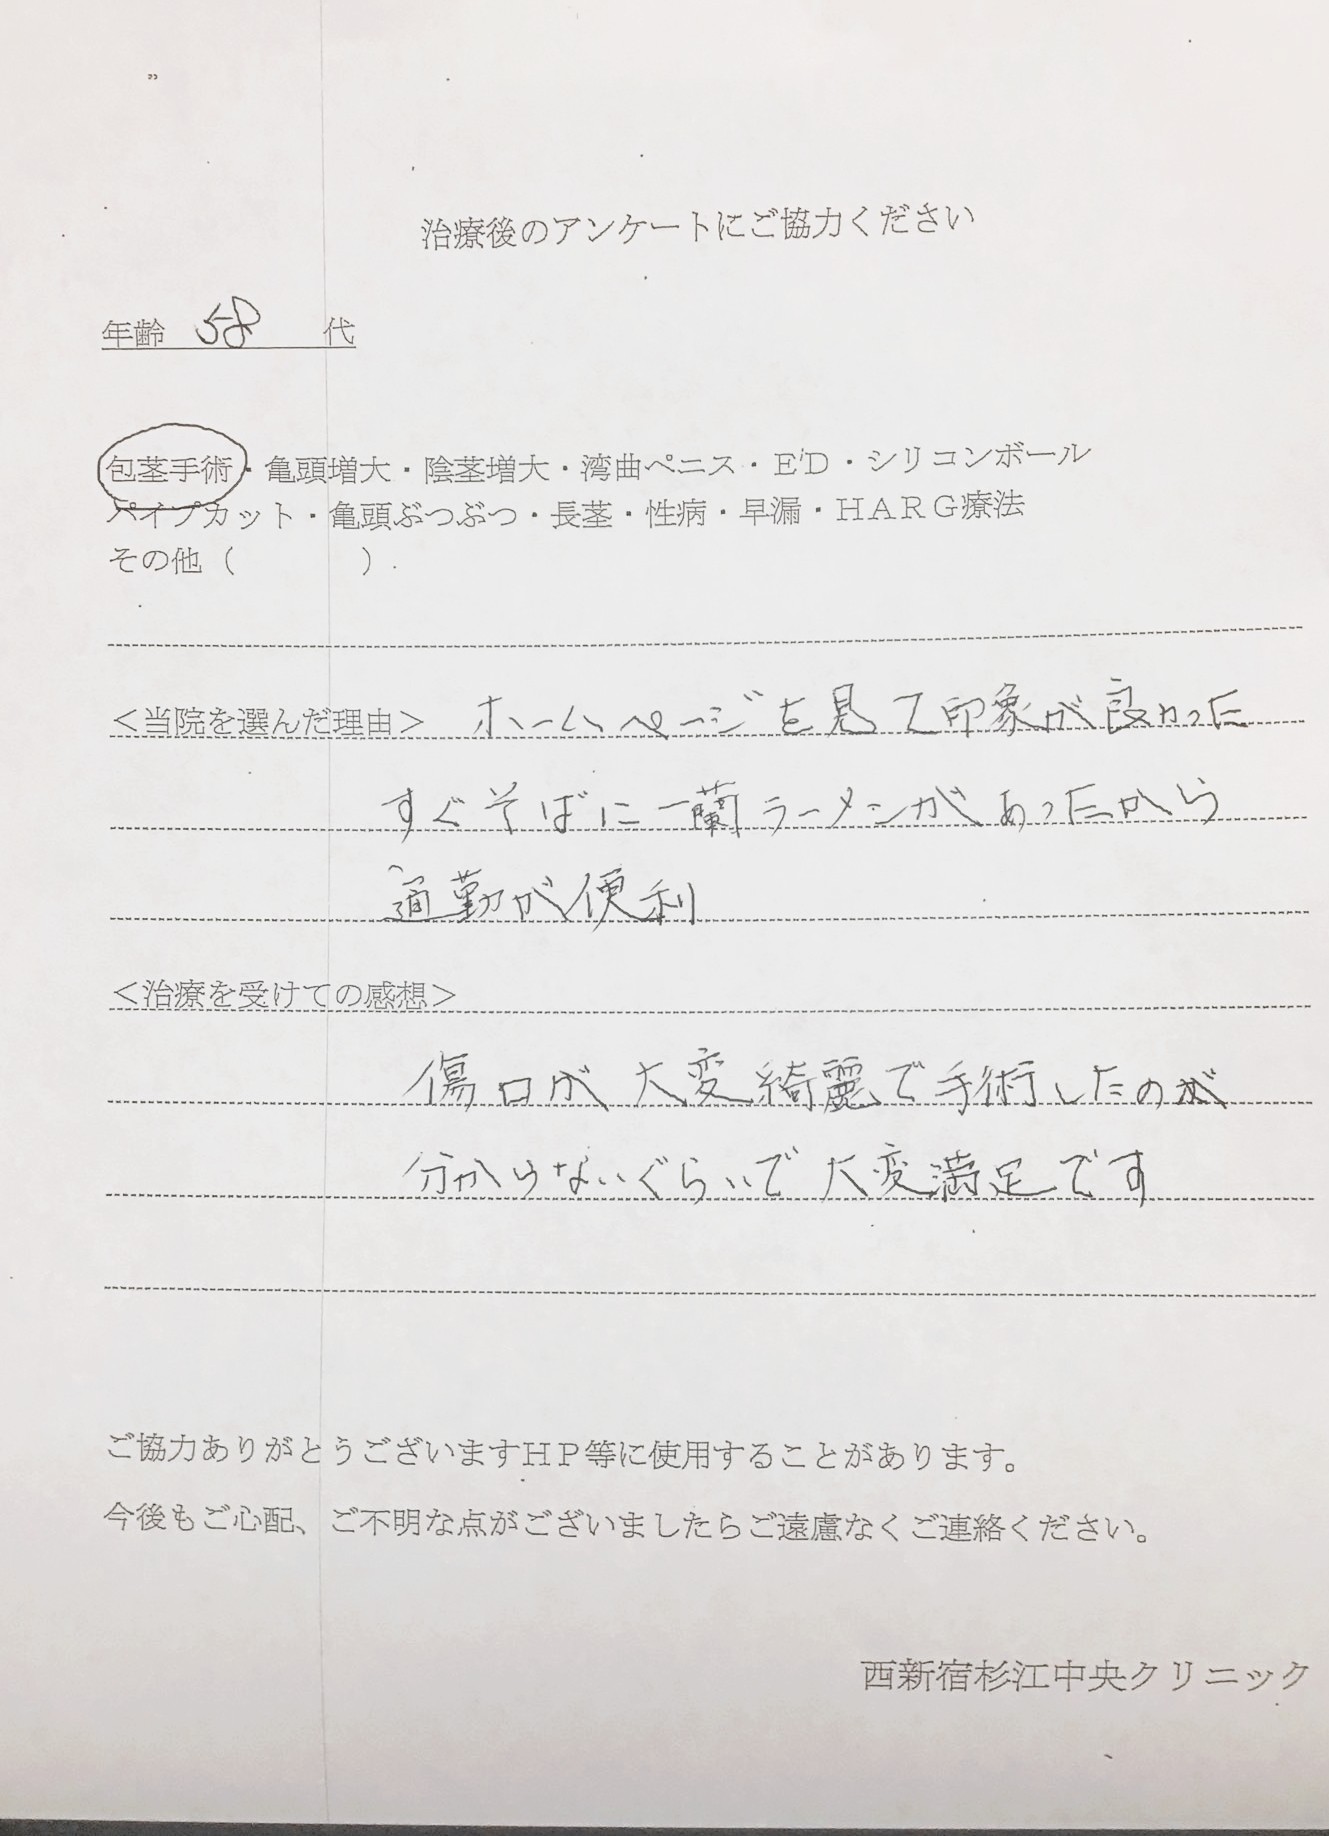 治療後のアンケートにご協力ください
年齢 58 代
包茎手術・亀頭増大・陰茎増大・湾曲ペニス・ED・シリコンボール
パイプカット・亀頭ぶつぶつ・長茎・性病・早漏・HARG療法
その他（　　　　）
＜当院を選んだ理由＞ ホームページを見て印象が良かった
すぐそばに一蘭ラーメンがあったから
通勤が便利
＜治療を受けての感想＞
傷口が大変綺麗で手術したのが
分からないぐらいで大変満足です
ご協力ありがとうございますHP等に使用することがあります。
今後もご心配、ご不明な点がございましたらご遠慮なくご連絡ください。
西新宿杉江中央クリニック